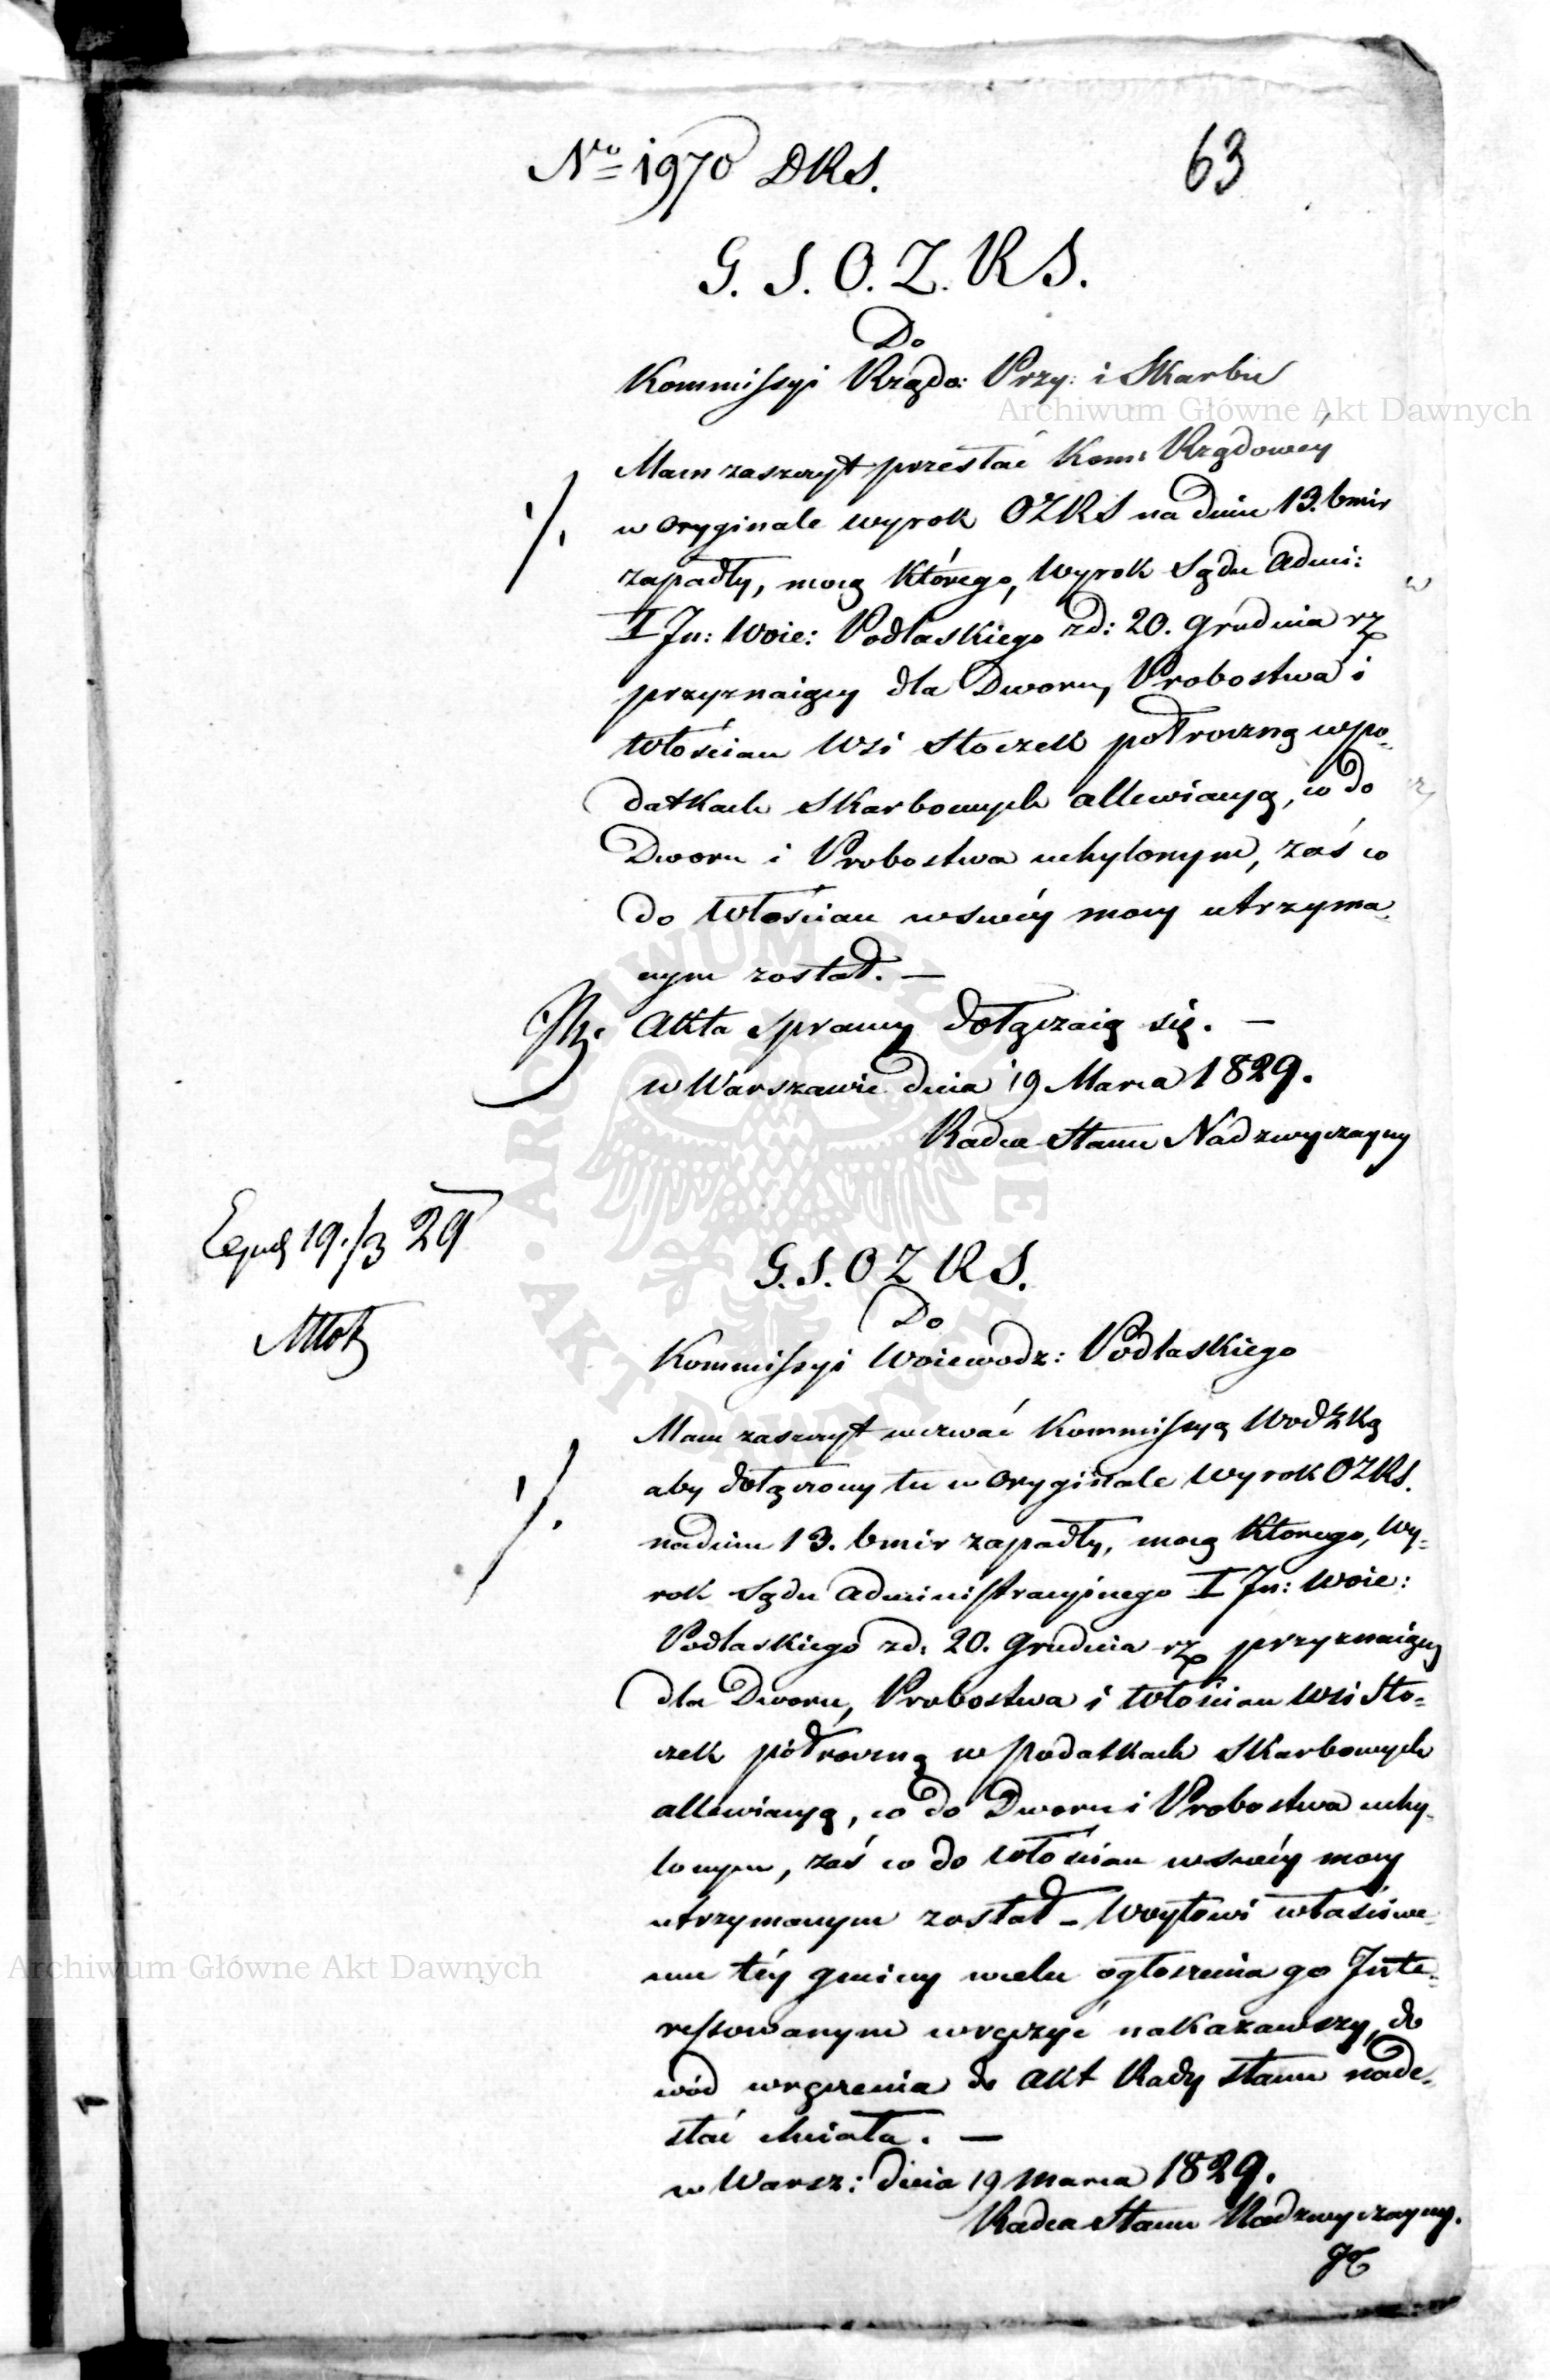 No 1970 DRS.
63
G. S. O. Z. R S.
Do
Kommissyi Rządo: Przy: i Skarbu
Archiwum Główne Akt Dawnych
Mam zaszczyt przesłać Kom: Rządowéy
w oryginale wyrok OZRS na dniu 13. bmir
zapadły, mocą którego, Wyrok Sądu Admi:
I In: Woie: Podlaskiego zd: 20. Grudnia rz
przyznaiący dla Dworu, Probostwa i
Włościan Wsi Stoczek półroczną w po-
datkach Skarbowych allewiacyą, co do
Dworu i Probostwa uchylonym, zaś co
do Włościan w swéy mocy utrzyma-
nym został. —
Akta sprawy dołączaią się. —
w Warszawie dnia 19 Marca 1829.
Radca Stanu Nadzwyczayny
19./3 29
G. S. O Z R S.
Do
Kommissyi Woiewodz: Podlaskiego
Mam zaszczyt wezwać Kommissyą Wodzką
aby dołączony tu w oryginale Wyrok OZRS.
na dniu 13. bmir zapadły, mocą którego, Wy-
rok Sądu Administracyinego I In: Woie:
Podlaskiego zd: 20. Grudnia rz przyznaiący
dla Dworu, Probostwa i Włościan Wsi Sto-
czek półroczną w podatkach Skarbowych
allewiacyą, co do Dworu i Probostwa uchy-
lonym, zaś co do Włościan w swéy mocy
utrzymanym został – Woytowi właściwe-
mu téy gminy w celu ogłoszenia go Inte-
ressowanym wręczyć nakazawszy, do
wód wręczenia do Akt Rady Stanu nade-
słać chciała. —
w Warsz: dnia 19 Marca 1829.
Radca Stanu Nadzwyczayny.
Archiwum Główne Akt Dawnych
ARCHIWUM GŁÓWNE • AKT DAWNYCH •